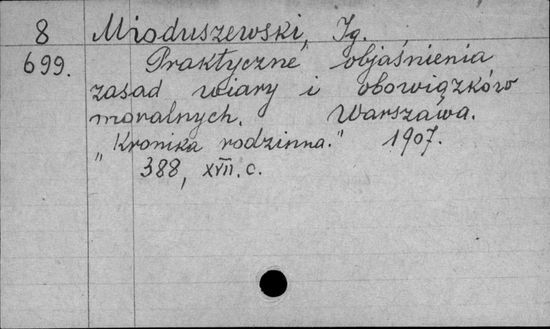 8 Mioduszewski, Ig.
699. Praktyczne objaśnienia
zasad wiary i obowiązków
moralnych. Warszawa.
"Kronika rodzinna." 1907.
388, XVII. c.